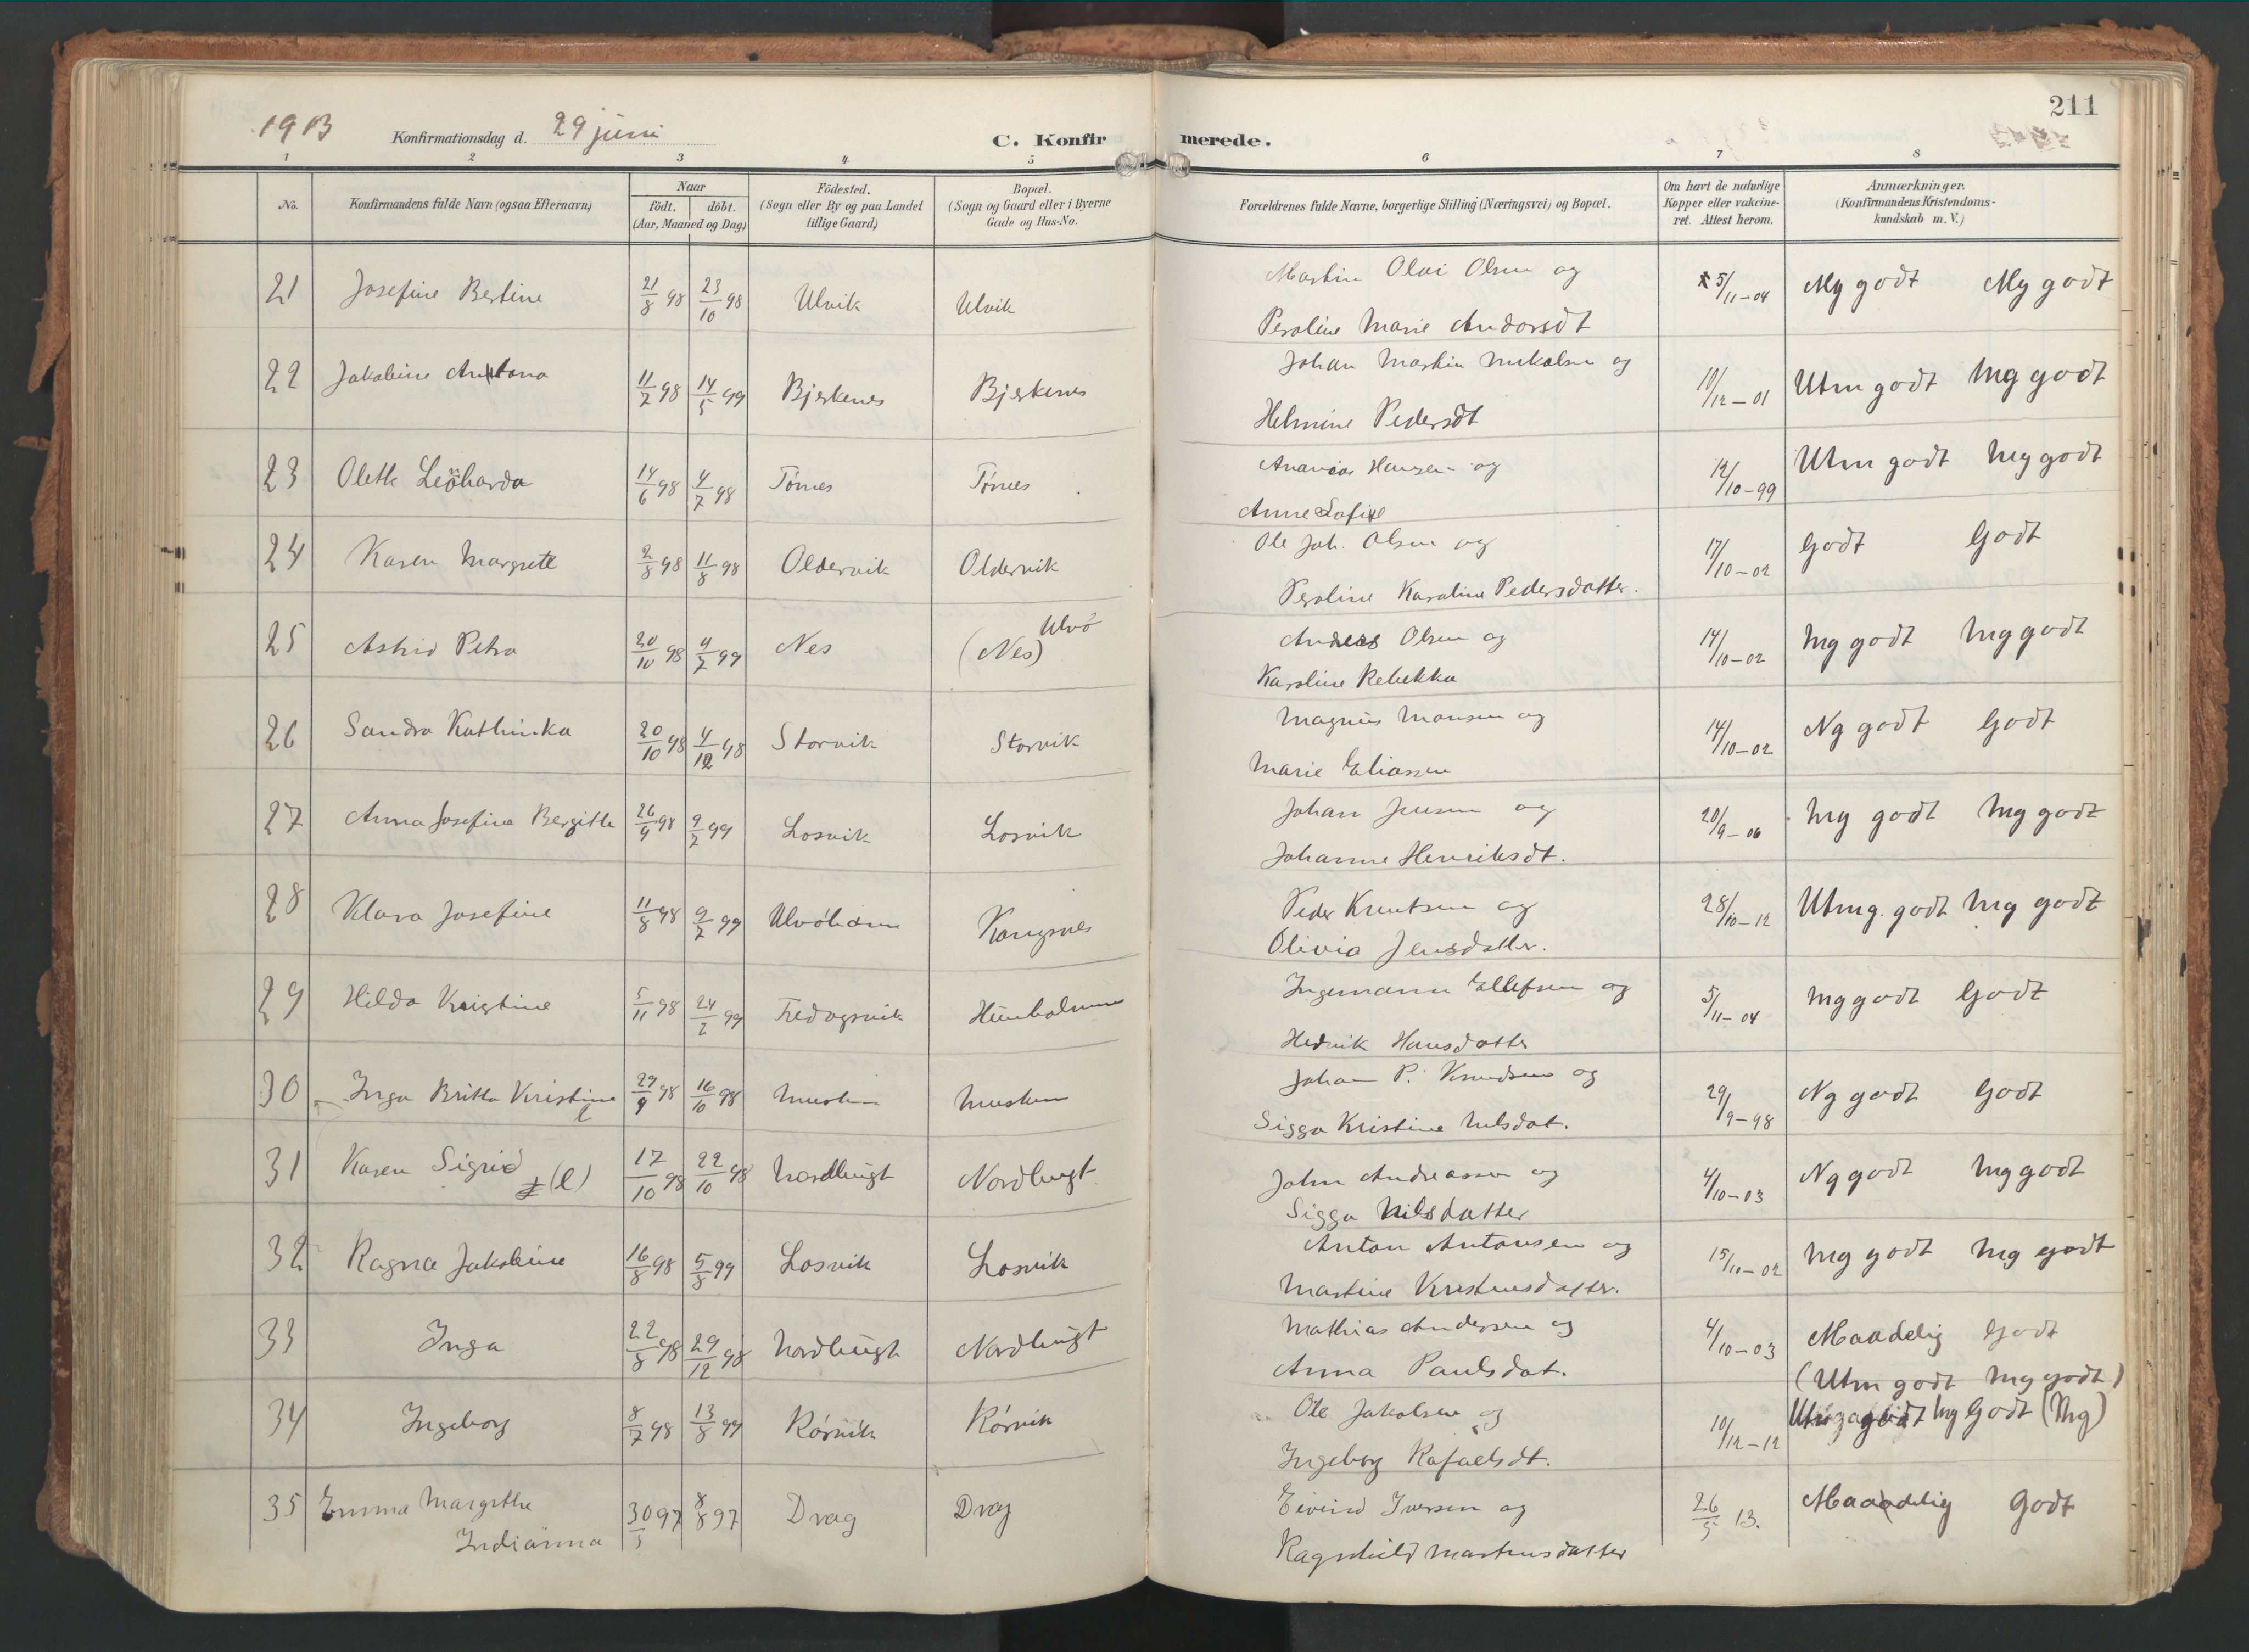 211
1913 Konfirmationsdag d. 29 juni C. Konfirmerede.
1 2 3 4 5 6 7 8
No. Konfirmandens fulde Navn (ogsaa Efternavn) Naar födt. döbt. (Aar, Maaned og Dag) Födested. (Sogn eller By og paa Landet tillige Gaard) Bopæl. (Sogn og Gaard eller i Byerne Gade og Hus-No. Forældrenes fulde Navne, borgerlige Stilling (Næringsvei) og Bopæl. Om havt de naturlige Kopper eller vakcineret. Attest herom. Anmærkninger. (Konfirmandens Kristendomskundskab m. V.)
21 Josefine Bertine 21/8 98 23/10 98 Ulvik Ulvik Martin Olai Olsen og 5/11-04 Mg godt Mg godt
Peroline Marie Andorsdt
22 Jakobine Antona 11/7 98 14/5 99 Bjerkenes Bjerkenes Johan Martin Mikalsen og 10/12-01 Utm godt Mg godt
Helmine Pedersdt
23 Oleth Leonharda 14/6 98 4/7 98 Tørnes Tørnes Ananias Hansen og 12/10-99 Utm godt Mg godt
Anne Sofie
24 Karen Margrete 2/8 98 11/8 98 Oldervik Oldervik Ole Joh. Olsen og 17/10-02 Godt Godt
Peroline Karoline Pedersdatter.
25 Astrid Petra 20/10 98 4/7 99 Nes Ulvö (Nes) Anders Olsen og 14/10-02 Mg godt Mg godt
Karoline Rebekka
26 Sandra Kathinka 20/10 98 4/12 98 Storvik Storvik Magnus Monsen og 14/10-02 Ng godt Godt
Marie Eliassen
27 Anna Josefine Bergitte 26/9 98 9/7 99 Losvik Losvik Johan Jensen og 20/9-06 Mg godt Mg godt
Johanne Henriksdt.
28 Klara Josefine 11/8 98 9/7 99 Ulvöhavn Korsnes Peder Knutsen og 28/10-12 Utmg. godt Mg godt
Olivia Jensdatter.
29 Hilda Kristine 5/11 98 24/2 99 Fredagsvik Ingemann Ellefsen og 5/11-04 Mg godt Godt
Hedvik Hansdatter
30 Inga Britta Kristine 29/9 98 16/10 98 Musken Musken Johan P. Knudsen og 29/9-98 Ng godt Godt
Sigga Kristine Nilsdat.
31 Karen Sigrid (l) 17/10 98 22/10 98 Nordbugt Nordbugt John Andreassen og 4/10-03 Ng godt Mg godt
Sigga Nilsdatter
32 Ragna Jakobine 16/8 98 5/8 99 Losvik Losvik Anton Antonsen og 15/11-02 Mg godt Mg godt
Martine Kristensdatter.
33 Inga 22/8 98 29/12 98 Nordbugt Nordbugt Mathias Andersen og 4/10-03 Maadelig Godt
Anna Paulsdat. (Utm godt Mg godt)
34 Ingeborg 8/7 98 13/8 99 Kórvik Kórvik Ole Jakobsen og 10/12-12 Mg Godt (Mg)
Ingeborg Rafaelsdt.
35 Emma Margrthe 30/5 97 8/8 97 Drag Drag Eivind Iversen og 26/5 13. Maadelig Godt
Indianna Ragnhild Martinsdatter